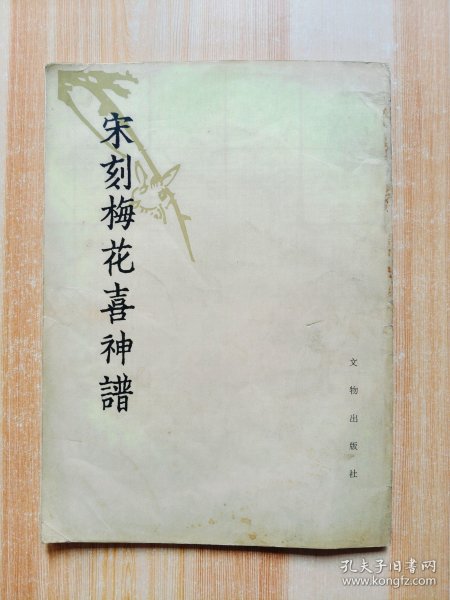 宋刻梅花喜神譜
文物出版社
孔夫子旧书网
www.kongfz.com